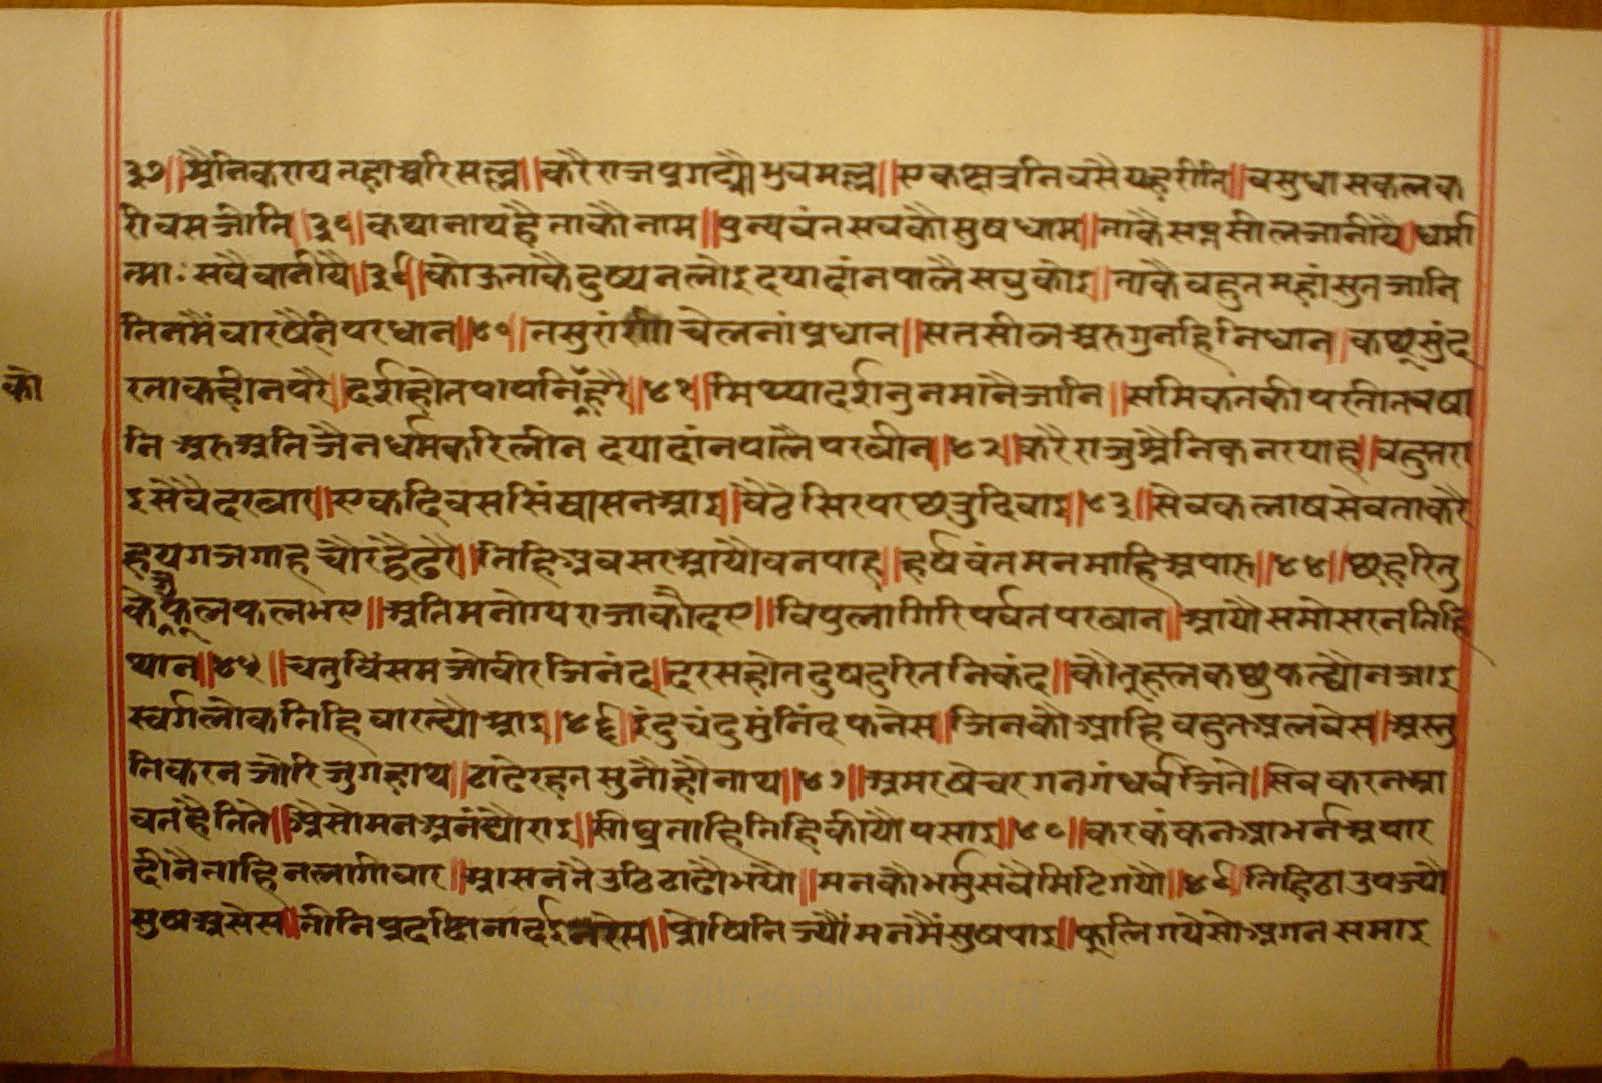 ३७॥ श्रैनिकराय तहा अरिसल्ल॥ करै राज पुगट्यौ भुवमल्ल॥ एकछत्र निवसै यह रीति॥ वसुधा सकल क
री वस जीति॥३८॥ कथा नाथ है ताकौ नाम॥ पुन्यवंत सवकौ सुषधाम॥ ताकै सप्तसील जानीयै॥ धर्मा
त्मा: सवै वानीयै॥३९॥ कोऊ ताकै दुष्य न लोइ दया दांन पालै सवु कोइ॥ ताकै वहुत महांसुत जानि
तिनमैं वारषैन परधान॥४०॥ तसु रांनी चेलनां प्रधान॥ सत सील अरु गुनहि निधान॥ कछू सुंद
को
रता कही न परै॥ दर्श होत पाप निहरै॥४१॥ मिथ्या दर्शनु न मांनै जानि॥ समिकत की परतीत वषा
नि अरु अति जैनधर्म करि लीन दया दांन पालै परवीन॥४२॥ करै राजु श्रैनिक नरयाह॥ वहुत रा
इ सेवै दरवार॥ एक दिवस सिंघासन आइ॥ वैठे सिर पर छत्रु दिवाइ॥४३॥ सेवक लाष सेव ता करै
हय गज गाह चौर द्वै ढरै॥ तिहि अवसर आयौ वनपाह॥ हर्षवंत मन माहि अपारु॥४४॥ छह रितु
के फूल फल भए॥ अति मनोग्य राजा कौ दए॥ विपुलागिरि पर्वत परवान॥ आयौ समोसरन तिहि
थान॥४५॥ चतुर्विंसम जो वीर जिनंद॥ दरस होत दुष दुरित निकंद॥ कौतूहल कछु कह्यौ न जाइ
स्वर्गलोक तिहि वारल्यौ आइ॥४६॥ इंदु चंदु मुंनिंद फनेस॥ जिनकौ आहि वहुत अलवेस॥ अस्तु
ति करन जोरि जुग हाथ॥ ठाढे रहत सुनौ हौ नाथ॥४७॥ अमर षेचर गन गंधर्व जिते॥ सिव करन आ
वत है तिते॥ अैसो मन अनंद्यौ राइ॥ सीघ्र ताहि तिहि कीयौ पसाइ॥४८॥ कर कंकन आभर्न अपार
दीनै ताहि न लागी वार॥ आसन तै उठि ठाढौ भयौ॥ मनकौ भर्मु सवै मिटि गयौ॥४९॥ तिहि ठा उपज्यौ
सुष असेस॥ तीनि प्रदछिना दई नरेस॥ प्रोषिति ज्यौं मनमैं सुष पाइ॥ फूलि गये सो अगन समाइ